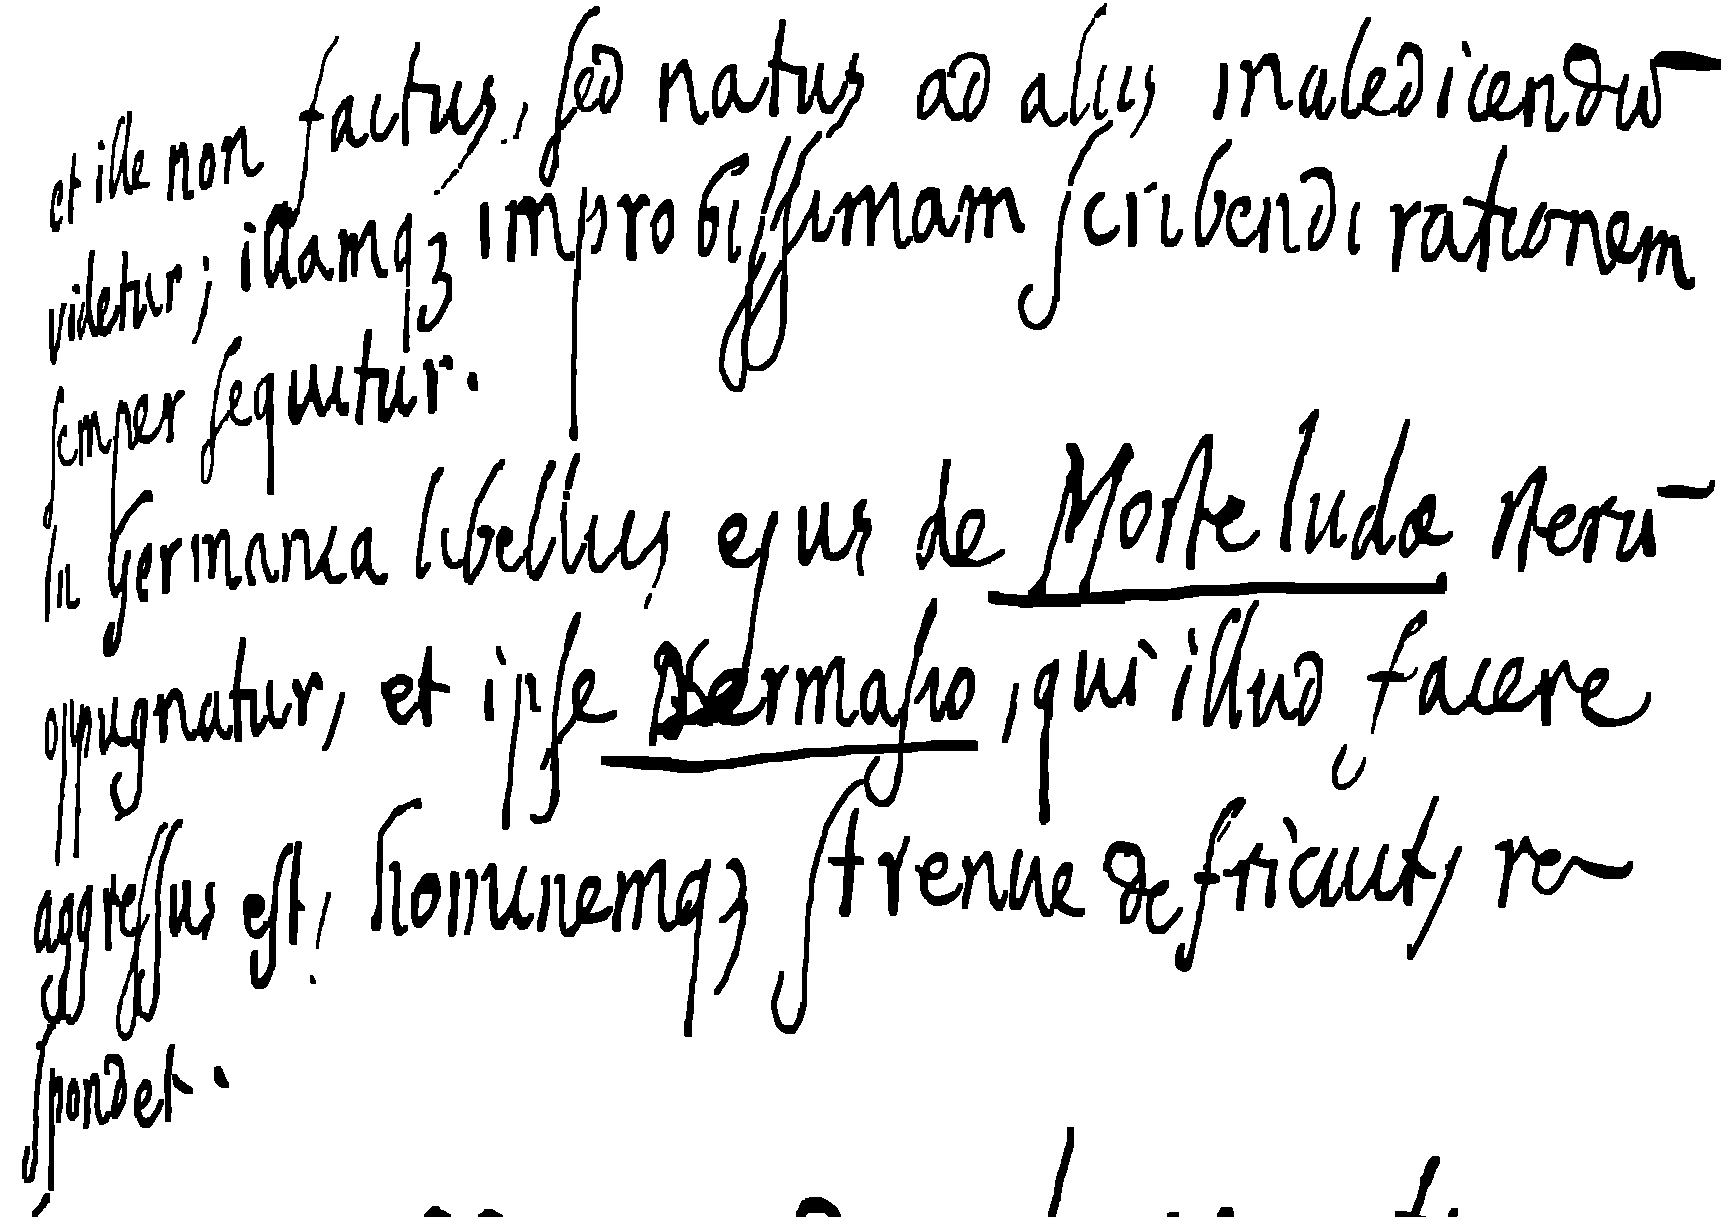 et ille non factus, sed natus ad alius maledicendū
videtur; illamqꝫ improbissimam scribendi rationem
semper sequitur.
In Germania libellus ejus de Morte Iudæ iterū
oppugnatur, et ipse Dermasio, qui illud facere
aggressus est, hominemqꝫ strenue defricuit, re-
spondet.